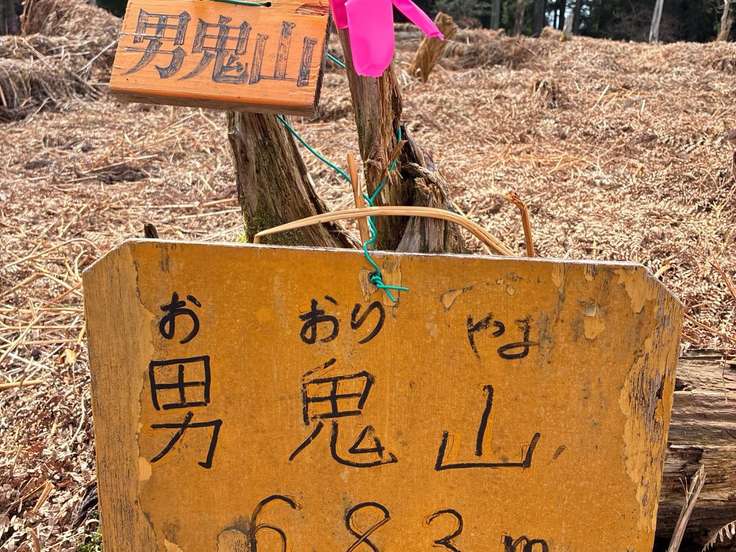 男鬼山
お おり やま
男鬼山
683m